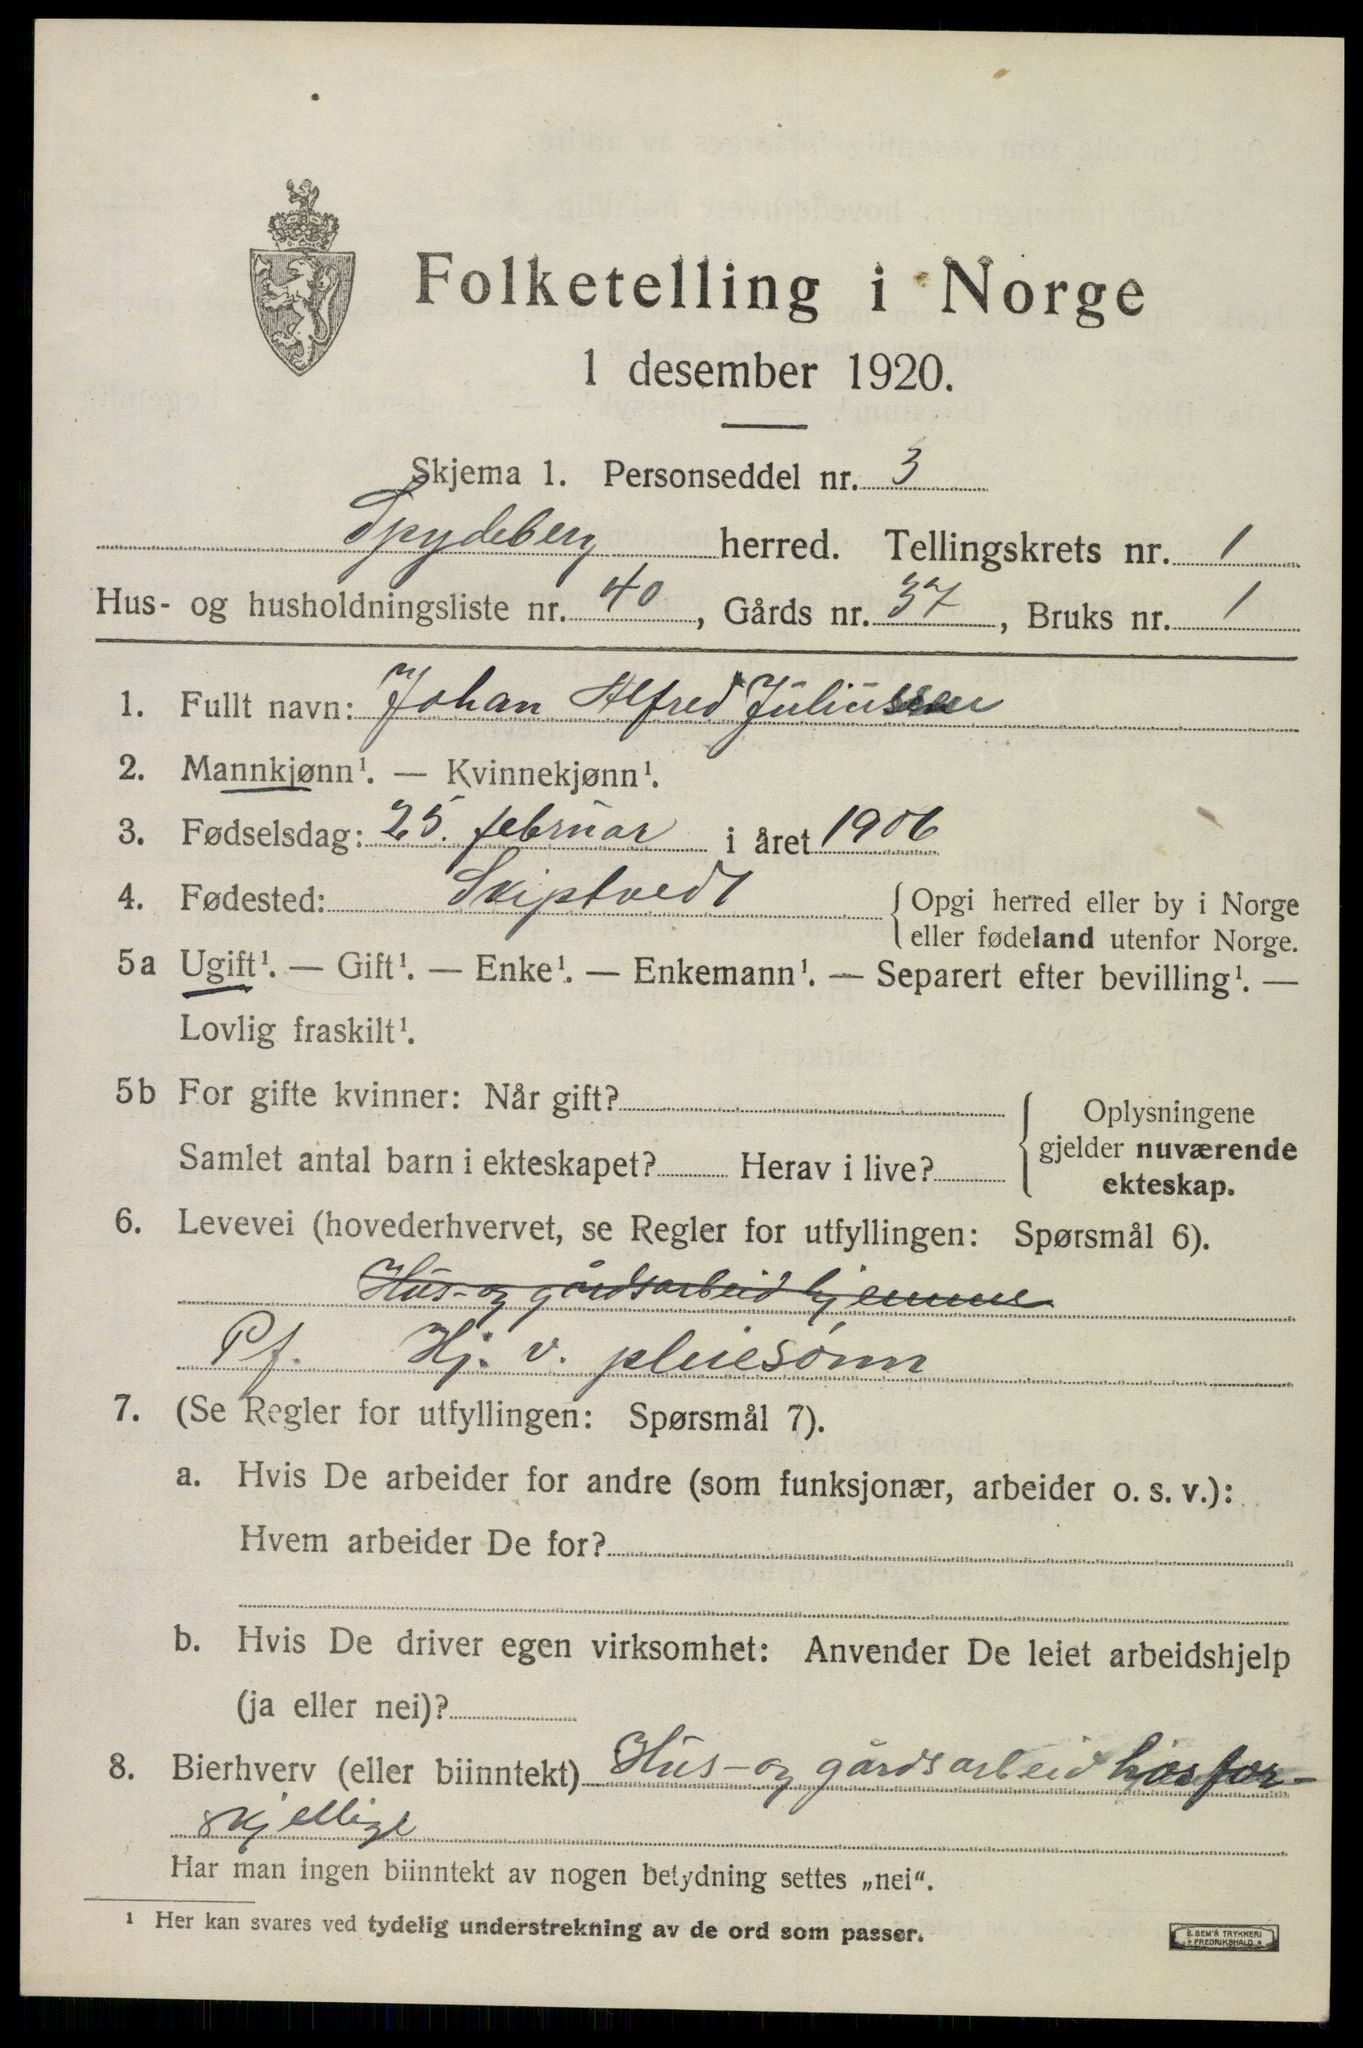 Folketelling i Norge
1 desember 1920.
Skjema 1. Personseddel nr. 3
Spydeberg herred. Tellingskrets nr. 1
Hus- og husholdningsliste nr. 40, Gårds nr. 37, Bruks nr. 1
1. Fullt navn: Johan Alfred Juliussen
2. Mannkjønn¹. — Kvinnekjønn¹.
3. Fødselsdag: 25. februar i året 1906
4. Fødested: Skiptvedt { Opgi herred eller by i Norge
eller fødeland utenfor Norge.
5a Ugift¹. — Gift¹. — Enke¹. — Enkemann¹. — Separert efter bevilling¹. —
Lovlig fraskilt¹.
5b For gifte kvinner: Når gift? { Oplysningene
gjelder nuværende
ekteskap.
Samlet antal barn i ekteskapet? Herav i live?
6. Levevei (hovederhvervet, se Regler for utfyllingen: Spørsmål 6).
Hus- og gårdsarbeid hjemme
Pf. Hj. v. pleiesønn
7. (Se Regler for utfyllingen: Spørsmål 7).
a. Hvis De arbeider for andre (som funksjonær, arbeider o. s. v.):
Hvem arbeider De for?
b. Hvis De driver egen virksomhet: Anvender De leiet arbeidshjelp
(ja eller nei)?
8. Bierhverv (eller biinntekt) Hus- og gårdsarbeid hos for-
skjellige
Har man ingen biinntekt av nogen betydning settes „nei“.
¹ Her kan svares ved tydelig understrekning av de ord som passer.
E. SEM'S TRYKKERI
FREDRIKSHALD